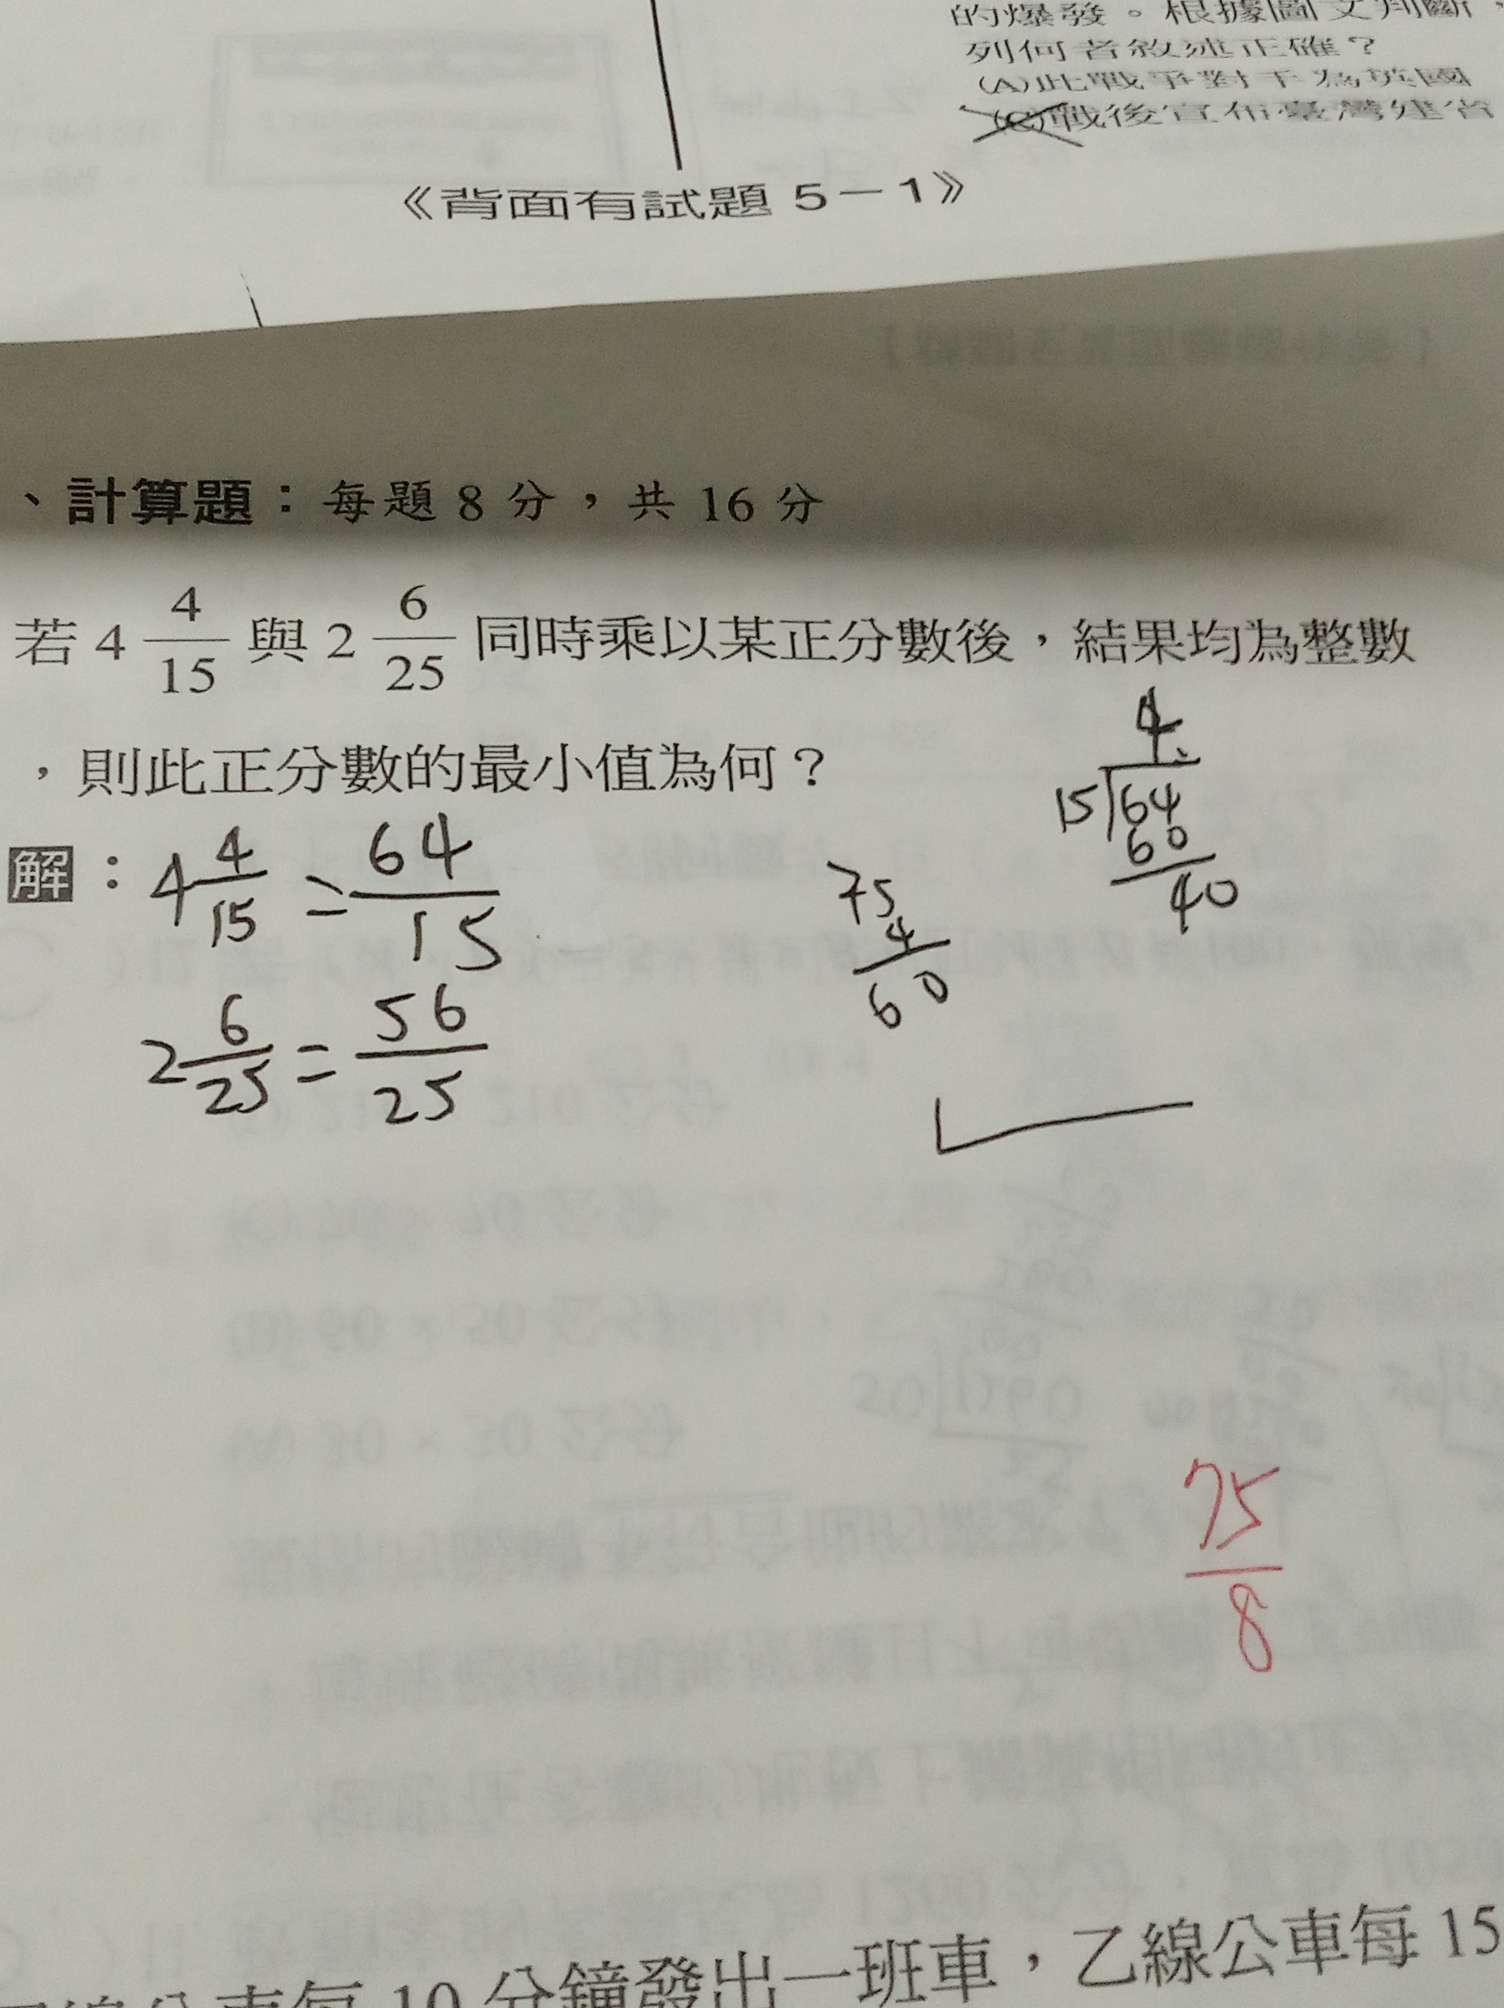 的爆發。根據圖文判斷，
列何者敘述正確？
(A)此戰爭對手為英國
(C)戰後宣布臺灣建省
《背面有試題 5－1》
、計算題：每題 8 分，共 16 分
若 4 4/15 與 2 6/25 同時乘以某正分數後，結果均為整數
，則此正分數的最小值為何？
解：4 4/15 = 64/15
2 6/25 = 56/25
75
4
60
4
15 64
60
40
75/8
線公車每 10 分鐘發出一班車，乙線公車每 15